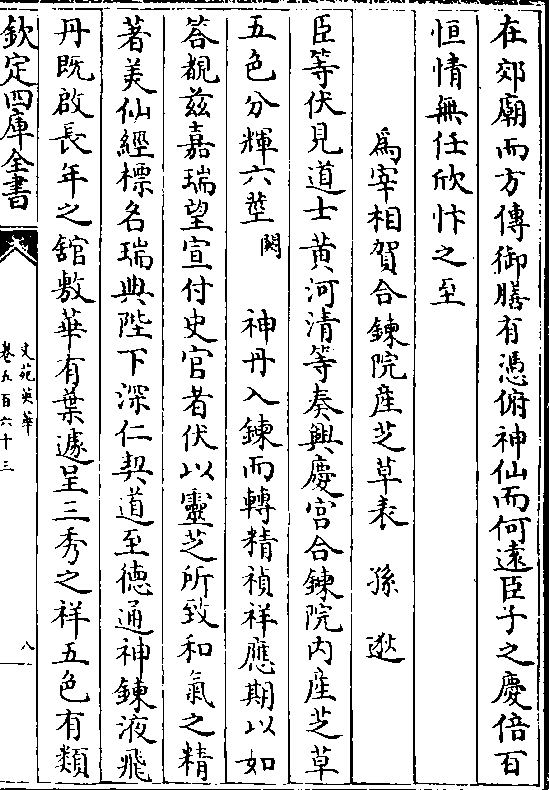 在郊廟而方傳御膳有憑俯神仙而何遠臣子之慶倍百
恒情無任欣忭之至
爲宰相賀合鍊院産芝草表　孫逖
臣等伏見道士黄河清等奏興慶宫合鍊院内産芝草
五色分輝六莖闕　神丹入鍊而轉精禎祥應期以如
荅覩兹嘉瑞望宣付史官者伏以靈芝所致和氣之精
著美仙經標名瑞典陛下深仁契道至德通神鍊液飛
丹既啟長年之舘敷華有葉遽呈三秀之祥五色有類
欽定四庫全書
文苑英華
卷五百六十三
八